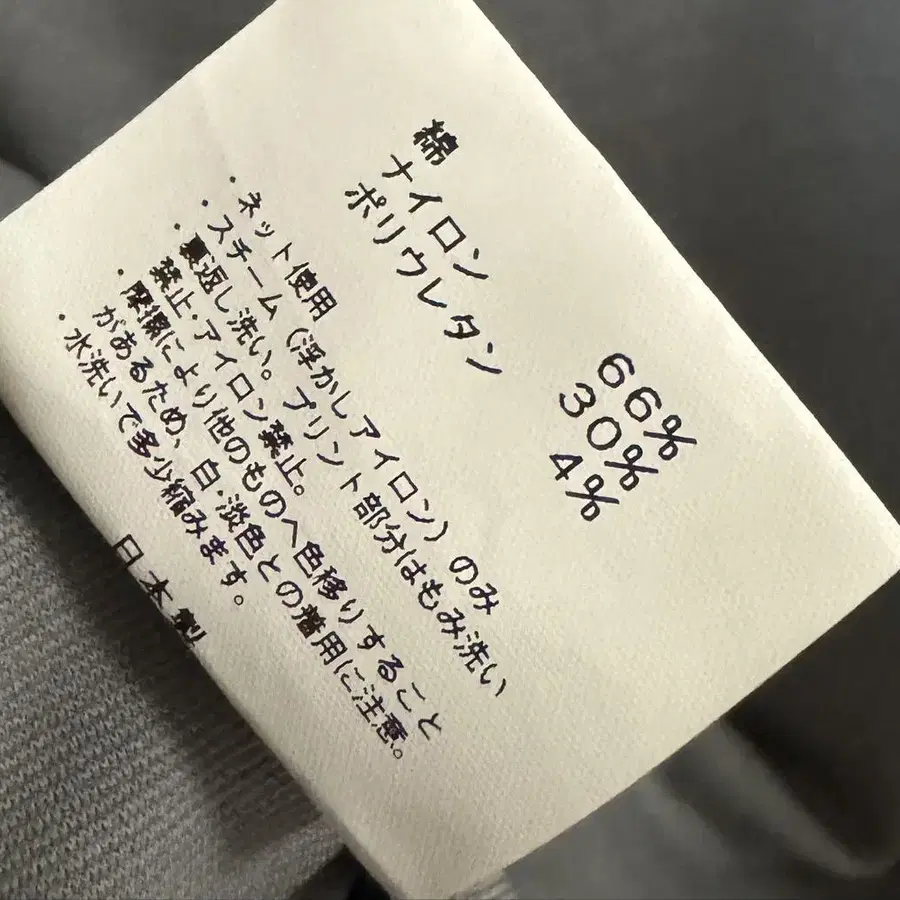 綿 66%
ナイロン 30%
ポリウレタン 4%
・ネット使用
・スチーム（浮かしアイロン）のみ
・裏返し洗い。プリント部分はもみ洗い
禁止・アイロン禁止。
・摩擦により他のものへ色移りすること
があるため、白・淡色との着用に注意。
・水洗いで多少縮みます。
日本製